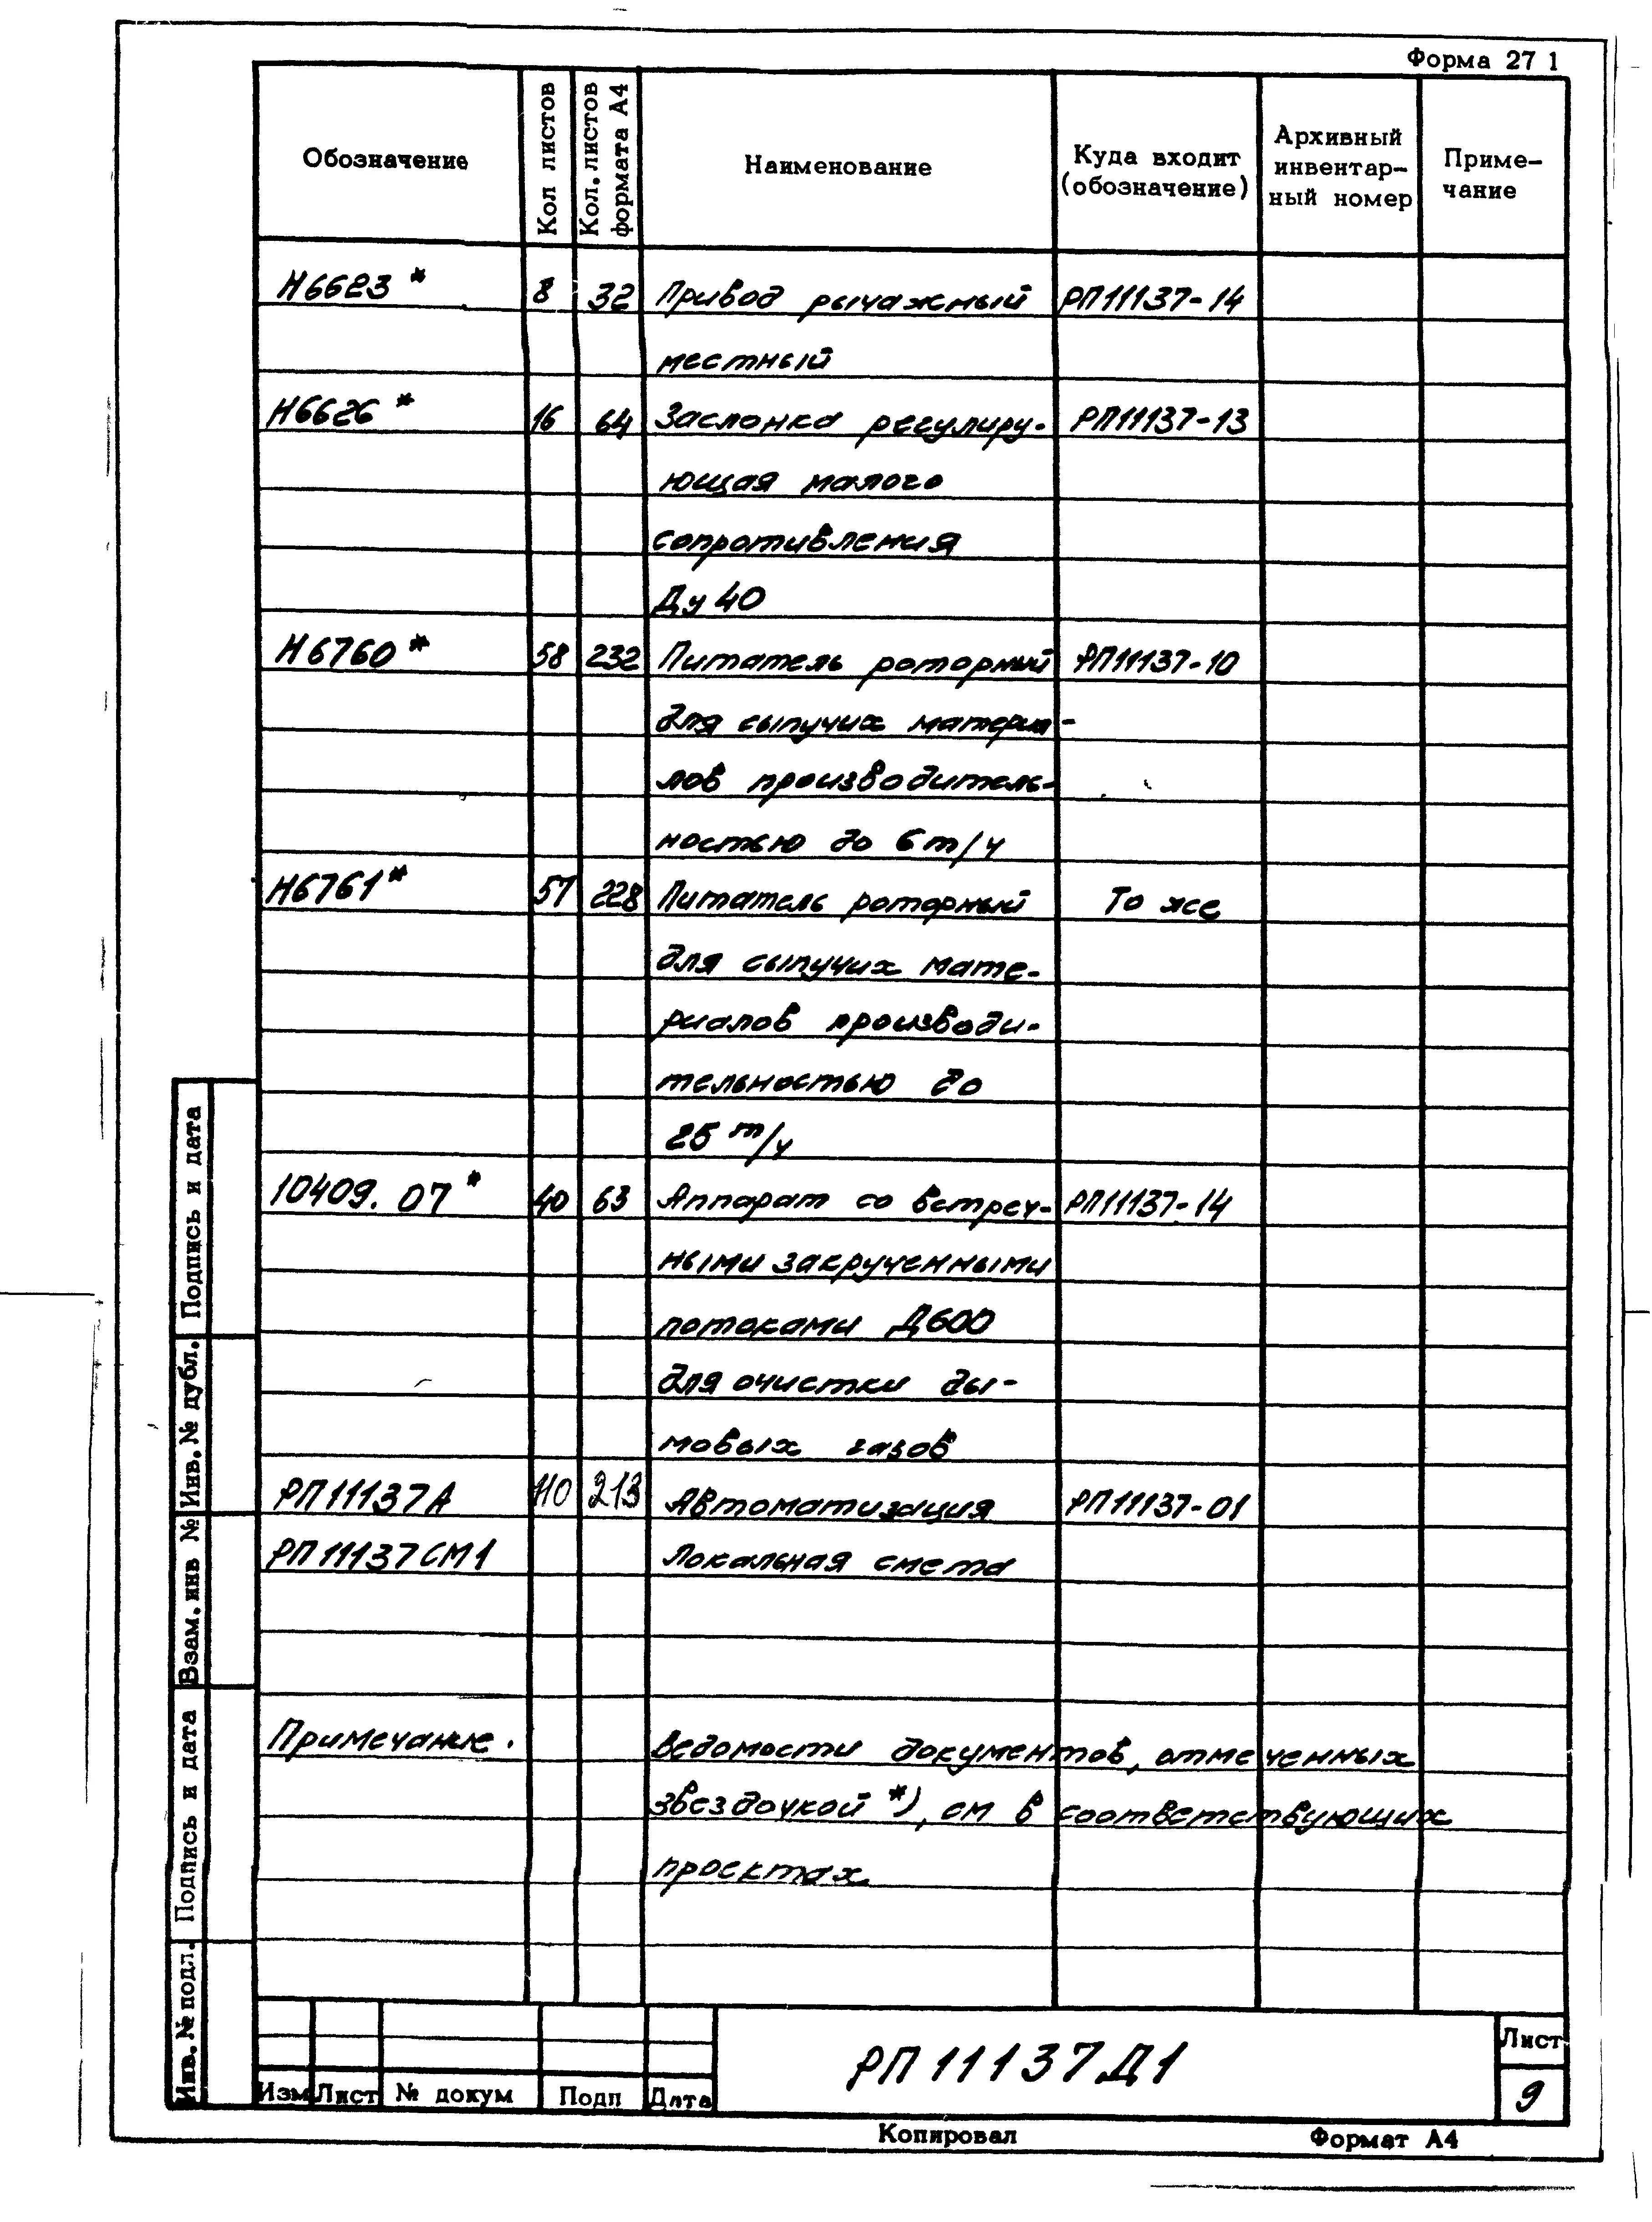 Форма 27 1
Обозначение
Кол листов
Кол. листов формата А4
Наименование
Куда входит (обозначение)
Архивный инвентар-ный номер
Приме-чание
Н6623* 8 32 Привод рычажный РП11137-14
местный
Н6626* 16 64 Заслонка регулиру- РП11137-13
ющая малого
сопротивления
Ду 40
Н6760* 58 232 Питатель роторный РП11137-10
для сыпучих материа-
лов производитель-
ностью до 6 т/ч
Н6761* 57 228 Питатель роторный То же
для сыпучих мате-
риалов производи-
тельностью до
25 т/ч
10409.07* 40 63 Аппарат со встреч- РП11137-14
ными закрученными
потоками Д600
для очистки ды-
мовых газов
РП11137А 110 213 Автоматизация РП11137-01
РП11137СМ1 Локальная смета
Примечание. Ведомости документов, отмеченных
звездочкой *), см в соответствующих
проектах
Подпись и дата
Инв. № дубл.
Взам. инв №
Подпись и дата
Инв. № подл.
Изм Лист № докум Подп Дата
РП11137Д1
Лист
9
Копировал Формат А4